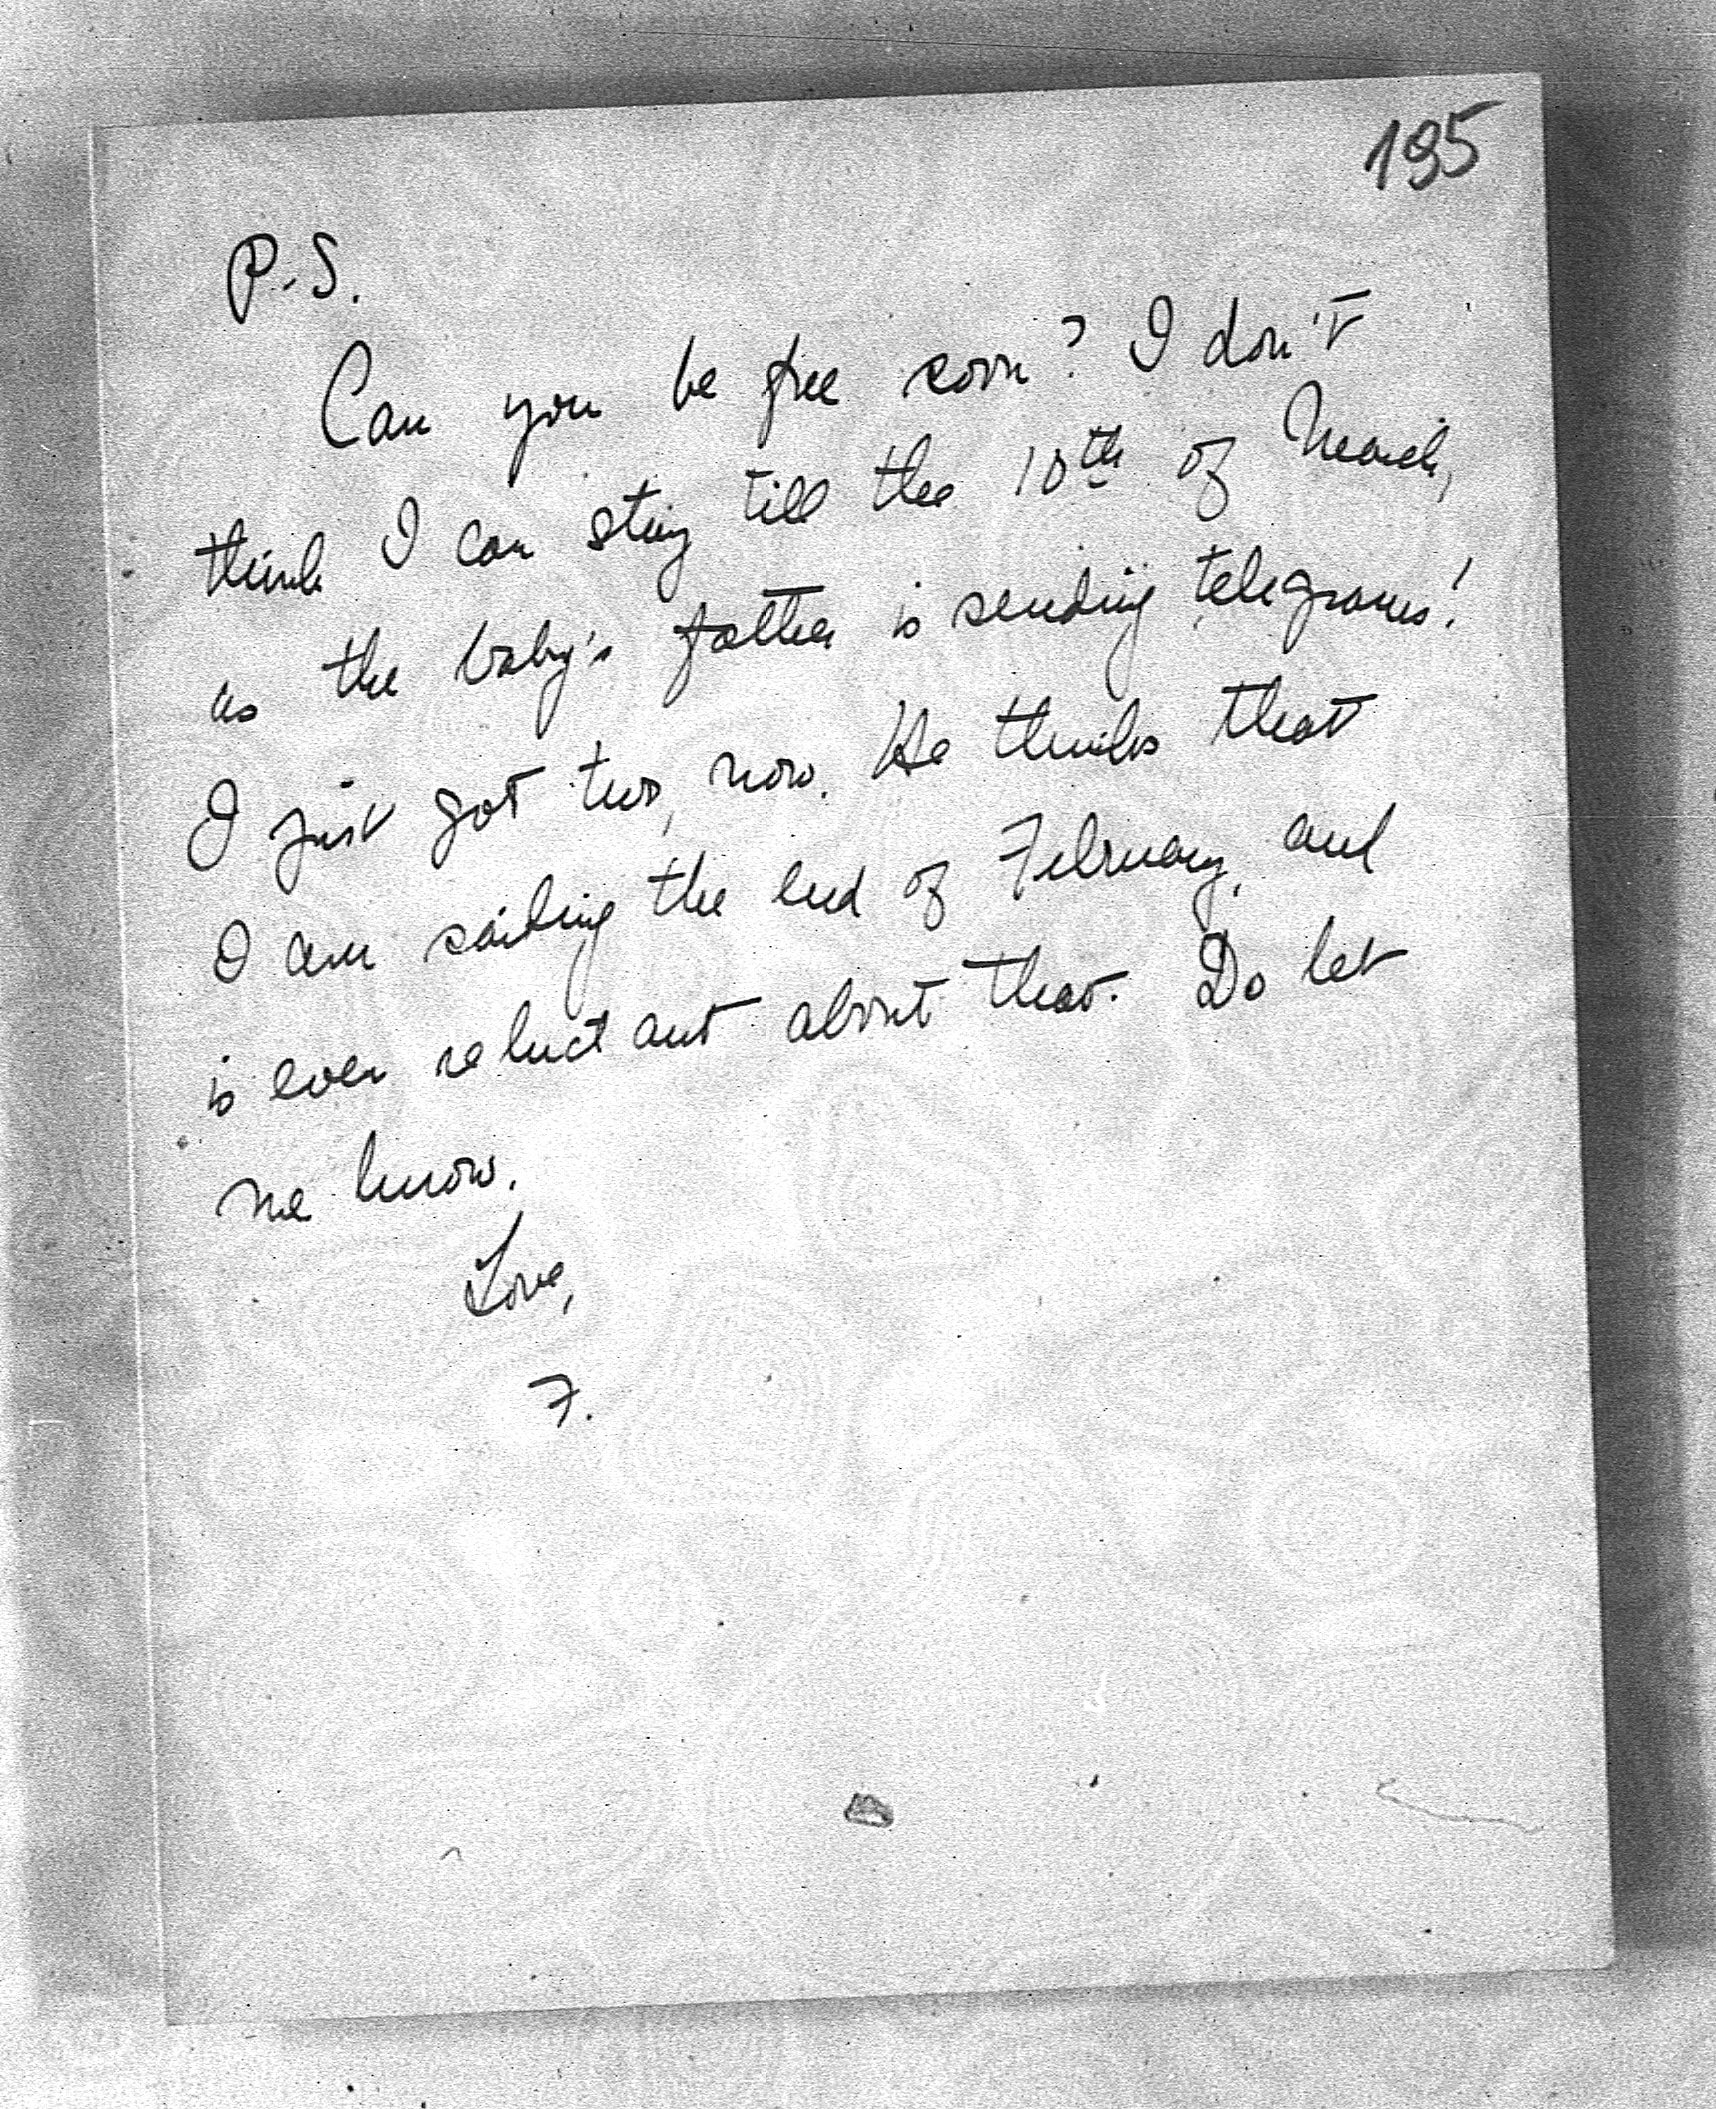 195
P.S.
Can you be free soon? I don't
think I can stay till the 10th of March,
as the baby's father is sending telegrams!
I just got two, now. He thinks that
I am sailing the end of February, and
is even reluctant about that. Do let
me know.
Love,
F.